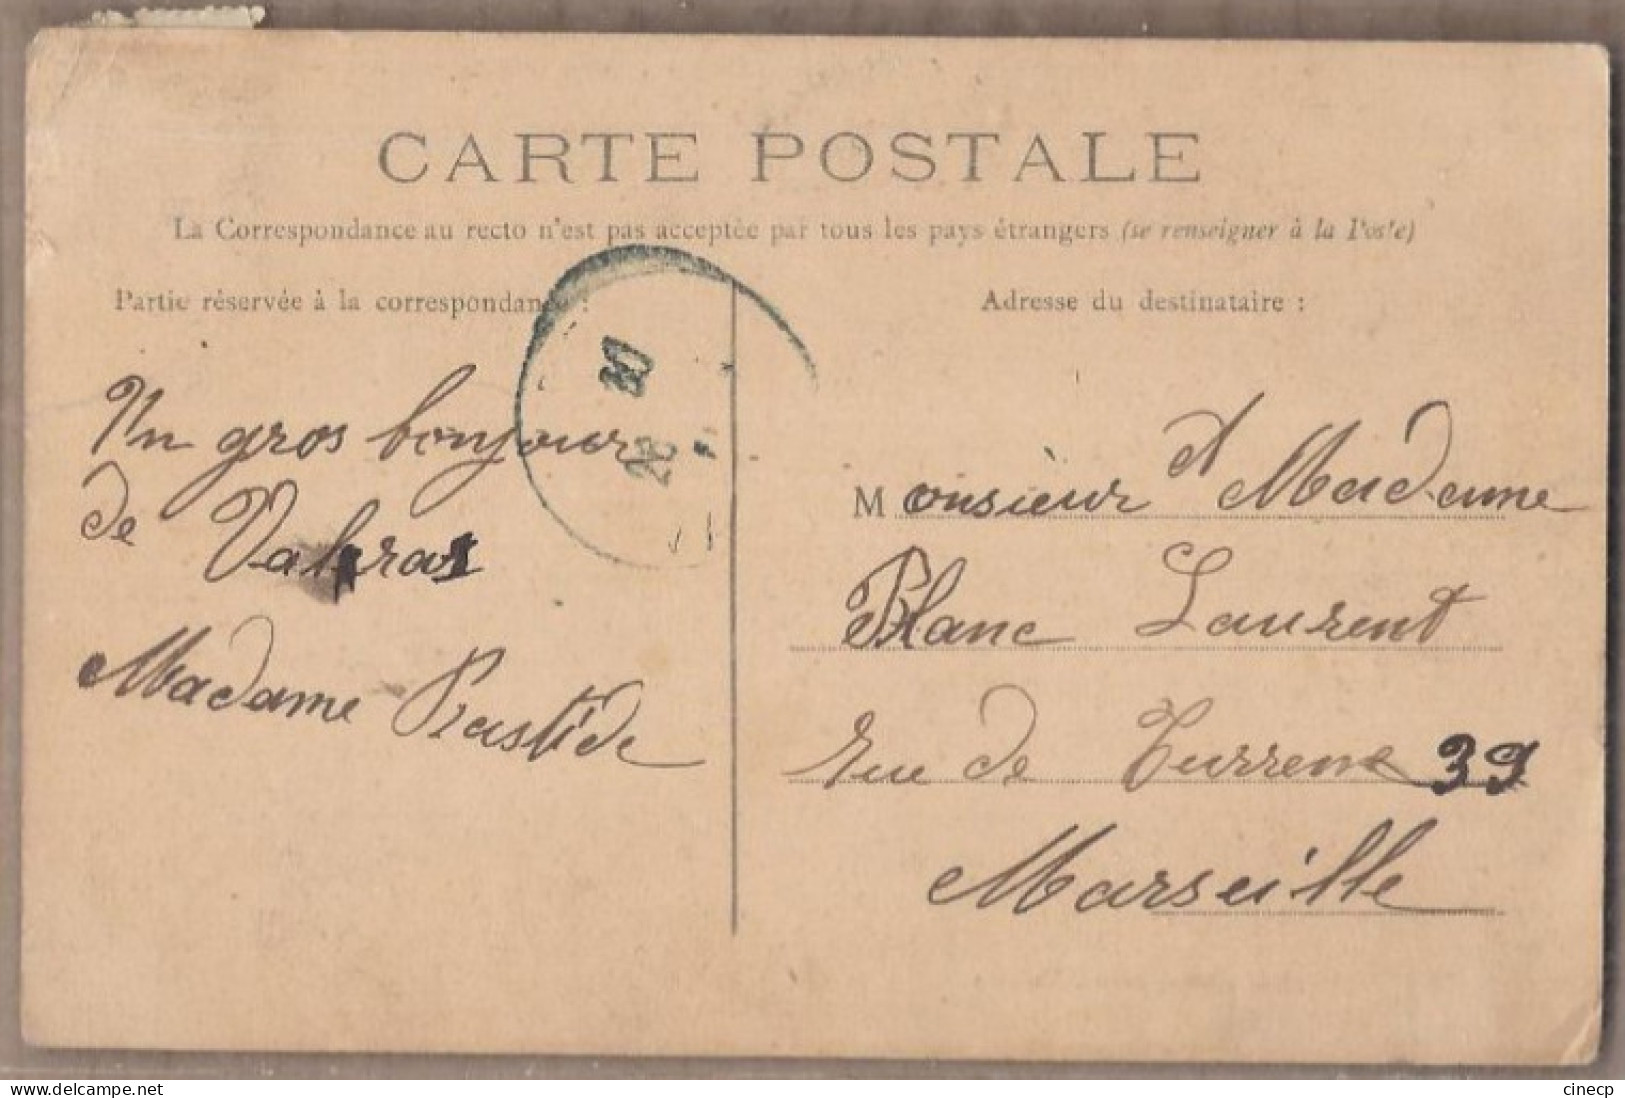 CARTE POSTALE
La Correspondance au recto n'est pas acceptée par tous les pays étrangers (se renseigner à la Poste)
Partie réservée à la correspondance :
Un gros bonjour
de Valras
Madame Bastide
Adresse du destinataire :
Monsieur et Madame
Blanc Laurent
rue de Turrene 39
Marseille
delcampe.net
cinecp